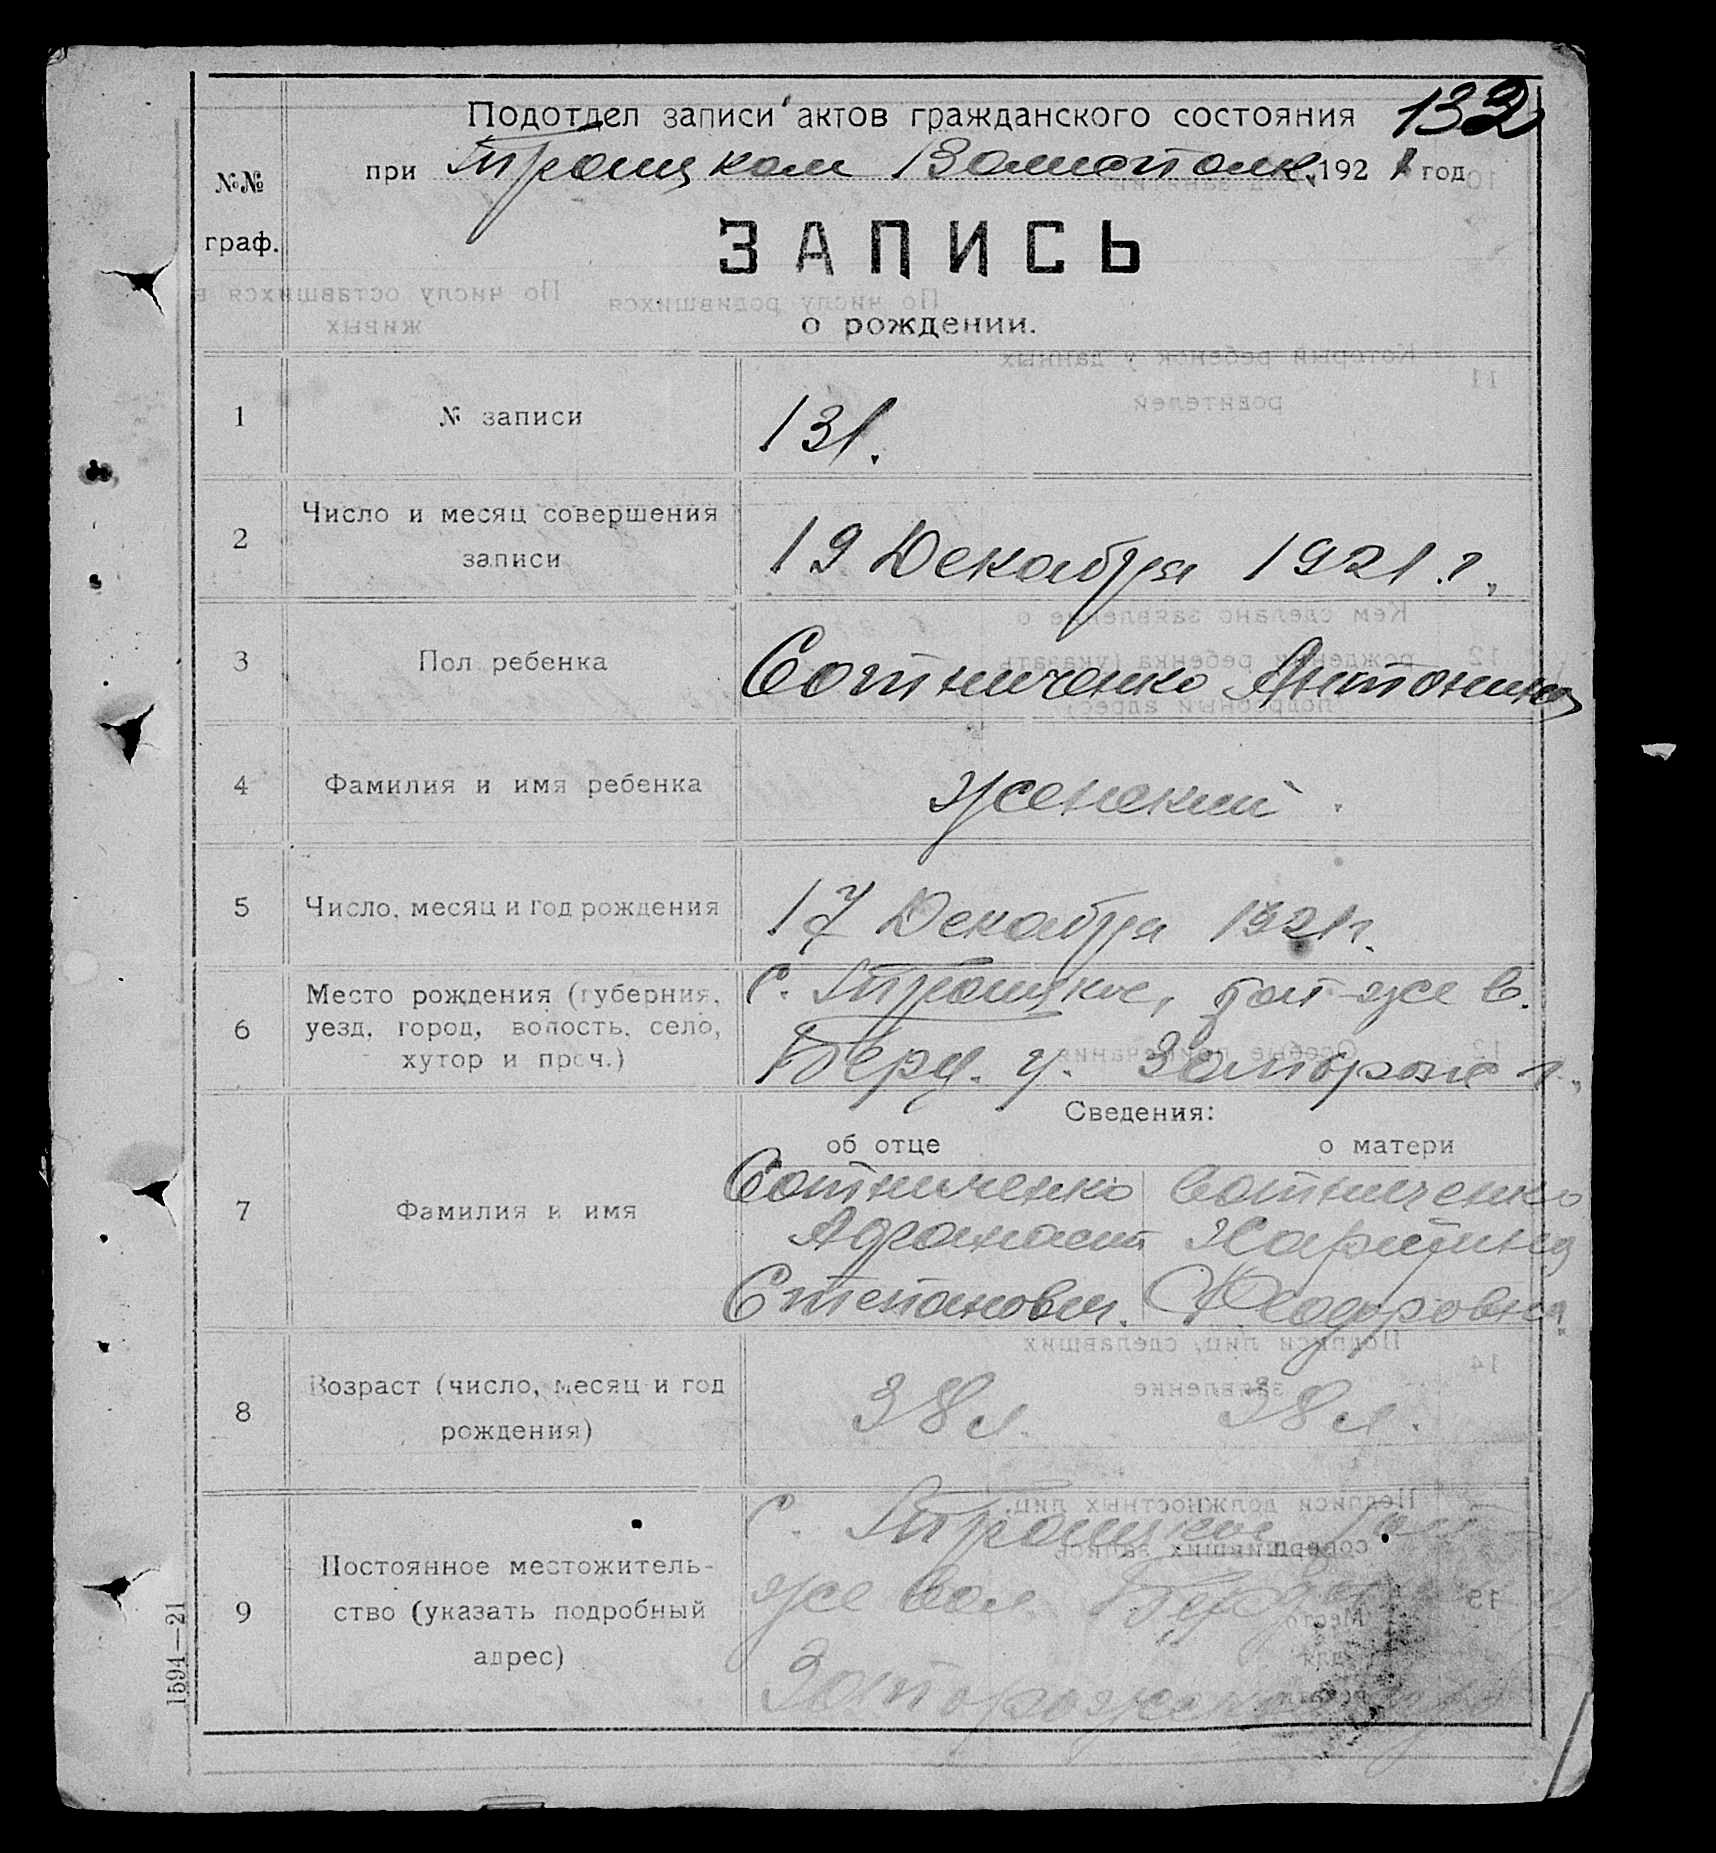 132
Подотдел записи актов гражданского состояния
при Троицком Волисполк. 1921 год
№№
граф.
ЗАПИСЬ
о рождении.
1 № записи 131.
2 Число и месяц совершения записи 19 Декабря 1921 г.
3 Пол ребенка Сотниченко Антонина
4 Фамилия и имя ребенка женский.
5 Число, месяц и год рождения 17 Декабря 1921 г.
6 Место рождения (губерния, С. Троицкое, той-же в.
уезд, город, волость, село, Берд. у. Запорож г.
хутор и проч.)
Сведения:
об отце о матери
7 Фамилия и имя
Сотниченко Сотниченко
Афанасий Харитина
Степанович. Феодоровна.
8 Возраст (число, месяц и год рождения) 38 л. 38 л.
9 Постоянное местожитель-
ство (указать подробный
адрес)
С. Троицкое той-
же вол. Берд
Запорожской губ
1594—21